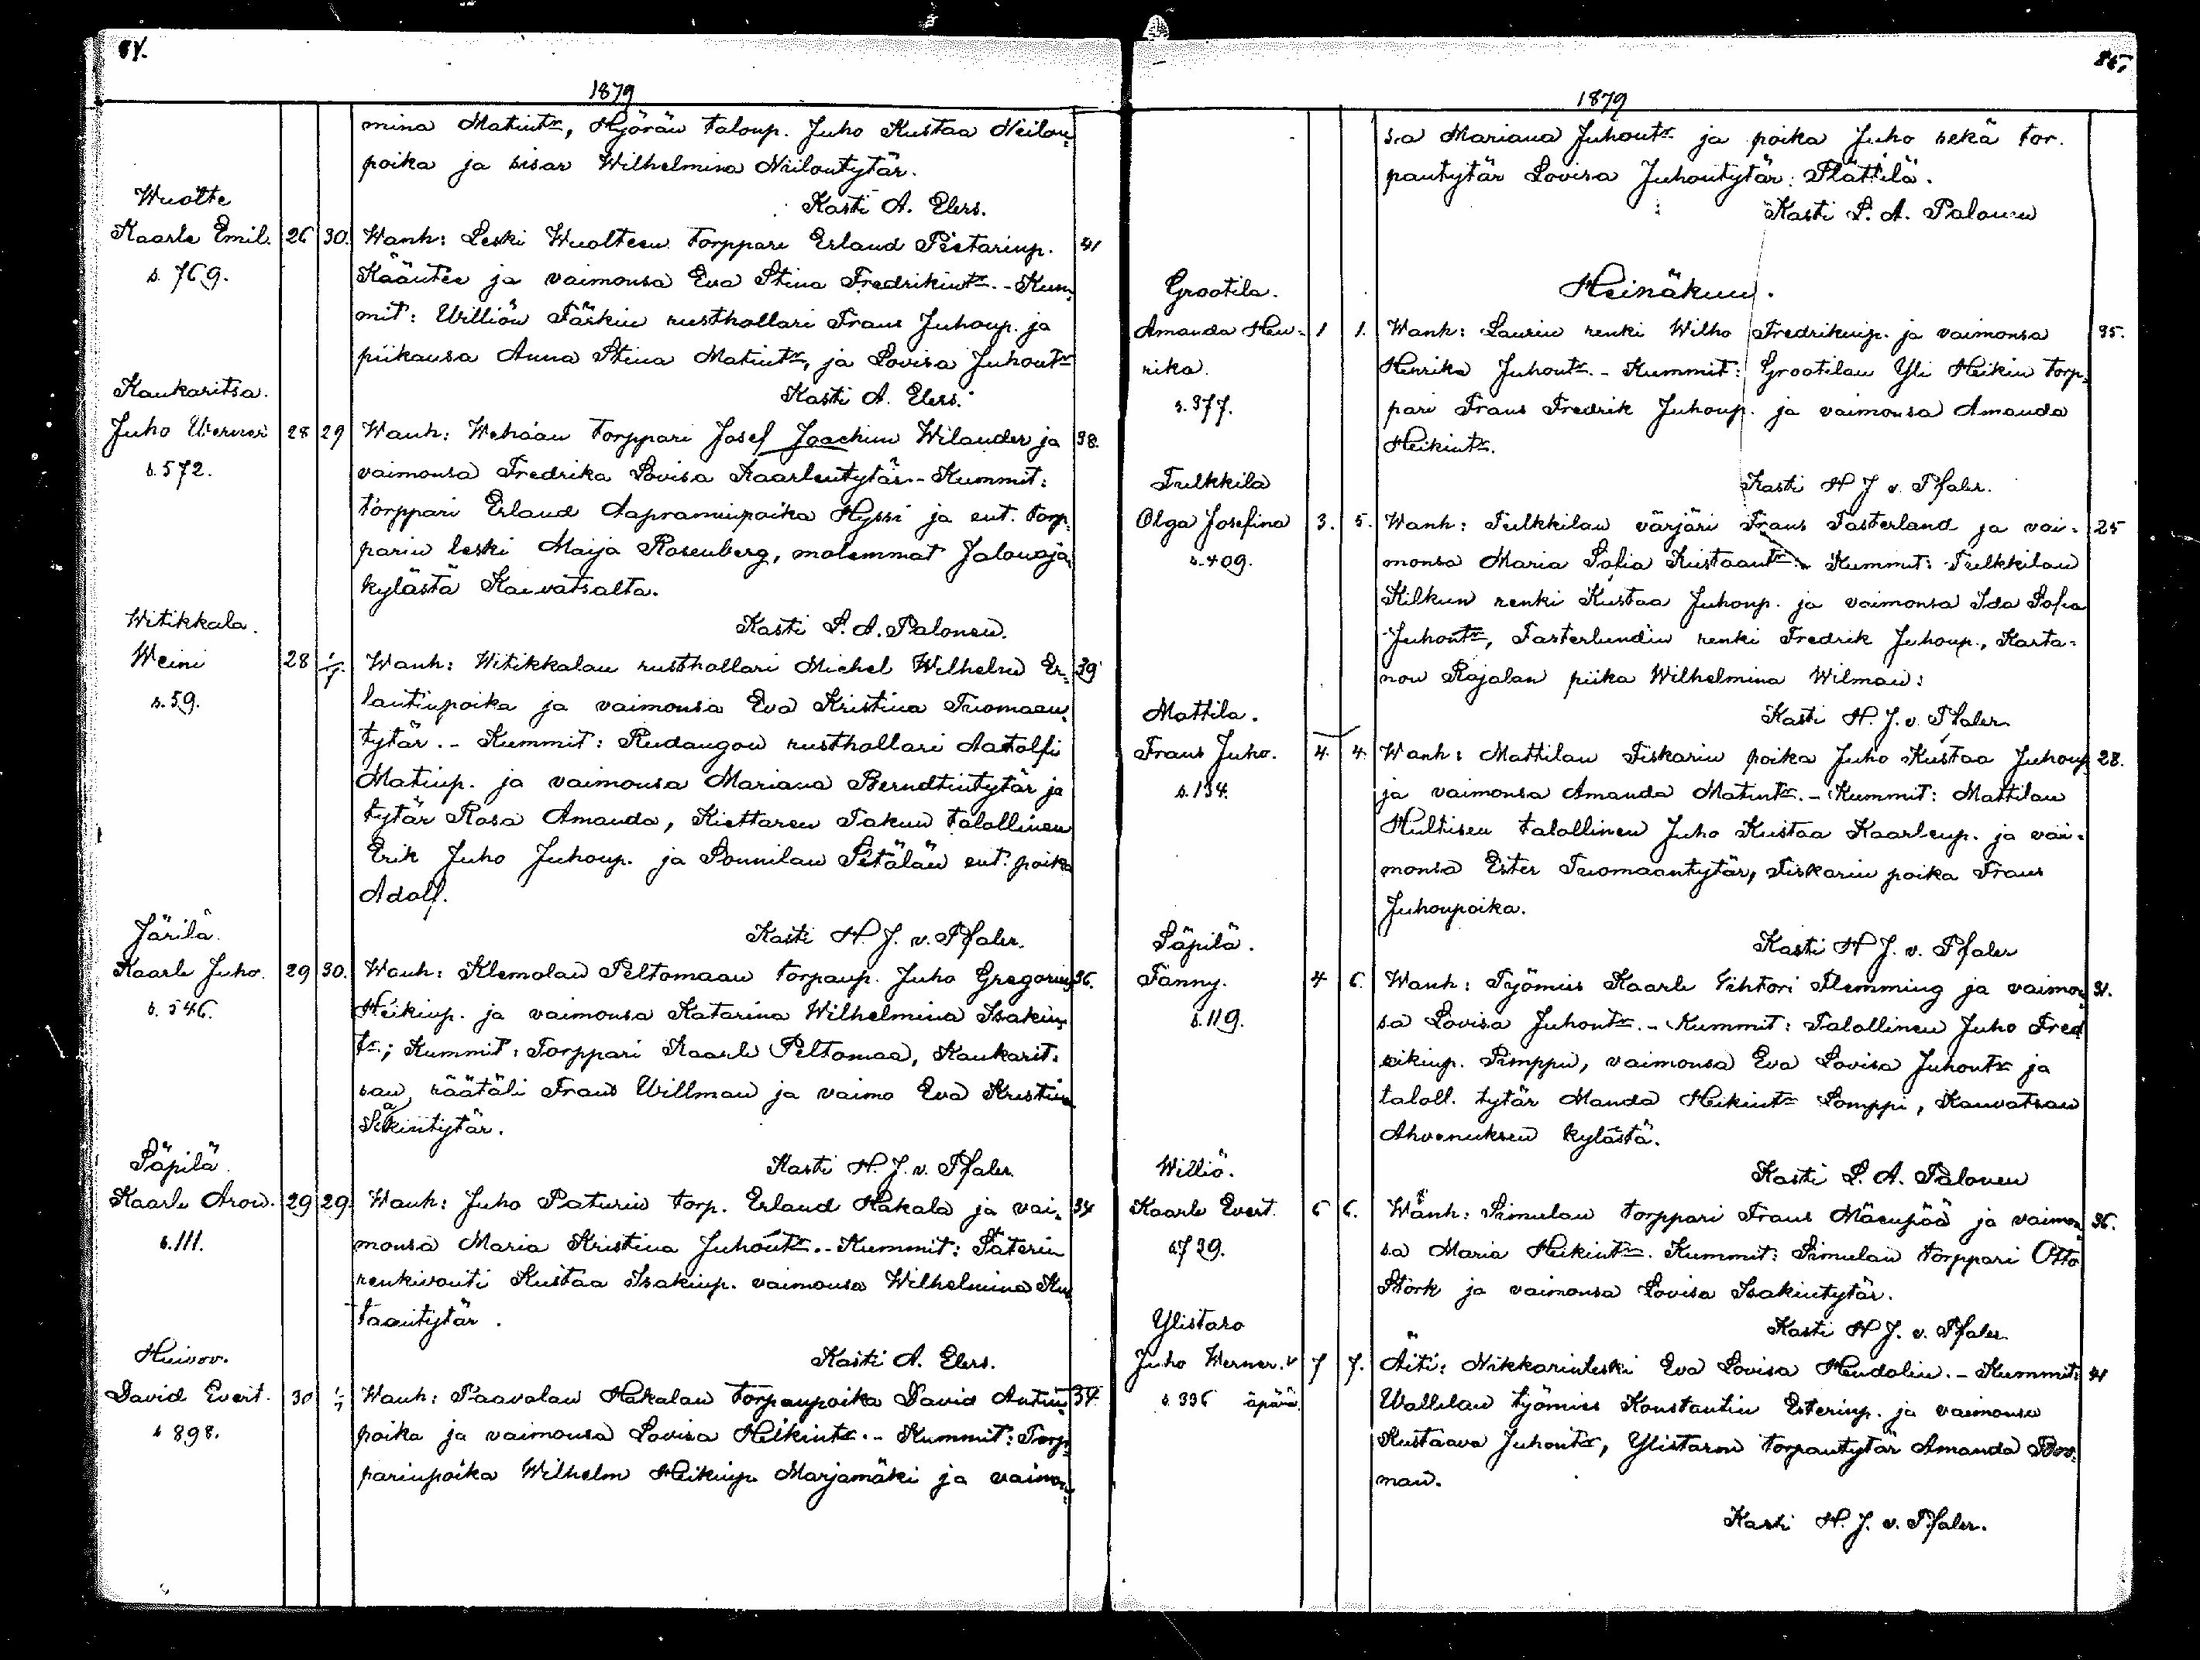 84.
1879
mina Matintr, Hyörän taloup. Juho Kustaa Niilon
poika ja sisar Wilhelmina Niilontytär.
Kasti A. Elers.
Wuolte
Kaarle Emil. 26 30. Wanh: Leski Wuolteen torppari Erland Pietarinp. 41
s. 769. Kääntee ja vaimonsa Eva Stina Fredrikintr. - Kum-
mit: Williön Färkin rusthollari Frans Juhonp. ja
piikansa Anna Stina Matintr, ja Lovisa Juhontr
Kasti A. Elers.
Kaukaritsa.
Juho Werner 28 29 Wanh: Wehään torppari Josef Joachim Wilander ja 38.
s. 572. vaimonsa Fredrika Lovisa Kaarlentytär. - Kummit:
torppari Erland Aapraminpoika Hyssi ja ent. torp-
parin leski Maija Rosenberg, molemmat Jalonoja
kylästä Kauvatsalta.
Kasti L. A. Palonen.
Witikkala.
Weini 28 1/7. Wanh: Witikkalan rusthollari Michel Wilhelm Er- 39
s. 59. lantinpoika ja vaimonsa Eva Kristina Tuomaan-
tytär. - Kummit: Rudangon rusthollari Aatolfi
Matinp. ja vaimonsa Mariana Berndtintytär ja
tytär Rosa Amanda, Kiettaren Takun talollinen
Erik Juho Juhonp. ja Sonnilan Setälän ent. poika
Adolf.
Kasti H. J. v. Pfaler.
Järilä.
Kaarle Juho. 29 30. Wanh: Klemolan Peltomaan torpanp. Juho Gregorius 36.
s. 546. Heikinp. ja vaimonsa Katarina Wilhelmina Isakin-
tr; Kummit: Torppari Kaarle Peltomaa, Kaukarit-
san räätäli Frans Willman ja vaimo Eva Kristina
Isakintytär.
Kasti H. J. v. Pfaler.
Säpilä.
Kaarle Aron. 29 29. Wanh: Juho Paturin torp. Erland Hakala ja vai- 34
s. 111. monsa Maria Kristina Juhontr. - Kummit: Säterin
renkivouti Kustaa Isakinp. vaimonsa Wilhelmina Kus
taantytär.
Kasti A. Elers.
Huivov.
David Evert. 30 1/7 Wanh: Paavolan Hakalan torpanpoika David Antin 34
s 898. poika ja vaimonsa Lovisa Heikintr. - Kummit: Torp-
parinpoika Wilhelm Heikinp. Marjamäki ja vaimon-
85.
1879
sa Mariana Juhontr ja poika Juho sekä tor-
pantytär Lovisa Juhontytär: Plättilä.
Kasti L. A. Palonen
Heinäkuu.
Grootila.
Amanda Hen- 1 1. Wanh: Laurin renki Wilho Fredrikinp. ja vaimonsa 35.
rika. Henrika Juhontr. - Kummit: Grootilan Yli Heikin torp-
s. 377. pari Frans Fredrik Juhonp. ja vaimonsa Amanda
Heikintr.
Kasti H J v. Pfaler.
Tulkkila
Olga Josefina 3. 5. Wanh: Tulkkilan värjäri Frans Tasterland ja vai- 25
s. 409. monsa Maria Sofia Kustaantr. Kummit: Tulkkilan
Kilkun renki Kustaa Juhonp. ja vaimonsa Ida Sofia
Juhontr, Tasterlundin renki Fredrik Juhonp., Karta-
non Rajalan piika Wilhelmina Wilman:
Kasti H. J. v. Pfaler.
Mattila.
Frans Juho. 4. 4. Wanh: Mattilan Fiskarin poika Juho Kustaa Juhonp 28.
s. 134. ja vaimonsa Amanda Matintr. - Kummit: Mattilan
Hultisen talollinen Juho Kustaa Kaarlenp. ja vai-
monsa Ester Tuomaantytär, Fiskarin poika Frans
Juhonpoika.
Kasti H J. v. Pfaler
Säpilä.
Fanny. 4 6. Wanh: Työmies Kaarle Vihtori Flemming ja vaimon- 31.
s. 119. sa Lovisa Juhontr. - Kummit: Talollinen Juho Fred
rikinp. Pimppu, vaimonsa Eva Lovisa Juhontr ja
taloll. tytär Manda Heikintr Lomppi, Kauvatsan
Ahvenuksen kylästä.
Kasti L. A. Palonen
Williö.
Kaarle Evert. 6 6. Wanh: Simulan torppari Frans Mäenpää ja vaimon 36.
s 739. sa Maria Heikintr. Kummit: Simulan torppari Otto
Störk ja vaimonsa Lovisa Isakintytär.
Kasti H J. v. Pfaler.
Ylistaro
Juho Werner. v 7 7. Äiti: Nikkarinleski Eva Lovisa Hendolin. - Kummit: 41
s. 336 äpärä. Wallilan työmies Konstantin Esterinp. ja vaimonsa
Kustaava Juhontr, Ylistaron torpantytär Amanda Boo-
man.
Kasti H. J. v. Pfaler.